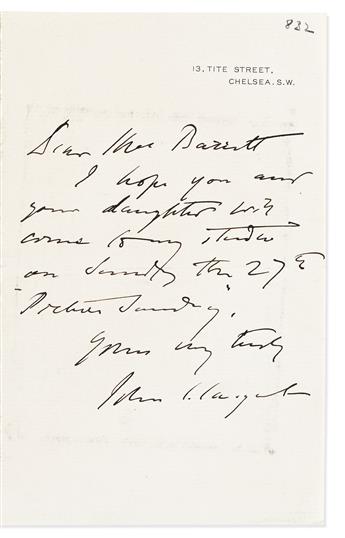 832
13, TITE STREET,
CHELSEA. S.W.
Dear Mrs Barrett
I hope you and
your daughter will
come to my studio
on Sunday the 27th
"Picture Sunday".
Yours very truly
John S. Sargent